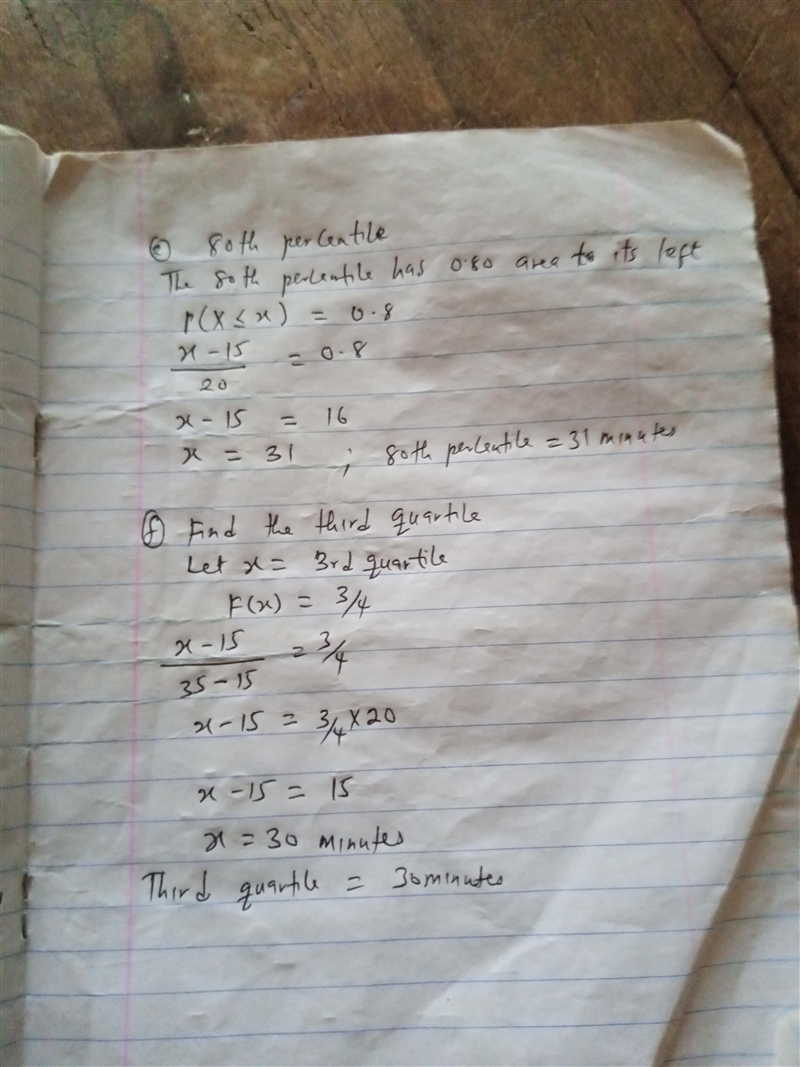 (e) 80th percentile
The 80th percentile has 0.80 area to its left
P(X ≤ x) = 0.8
x - 15 / 20 = 0.8
x - 15 = 16
x = 31 ; 80th percentile = 31 minutes
(f) Find the third quartile
Let x = 3rd quartile
F(x) = 3/4
x - 15 / 35 - 15 = 3/4
x - 15 = 3/4 × 20
x - 15 = 15
x = 30 minutes
Third quartile = 30 minutes